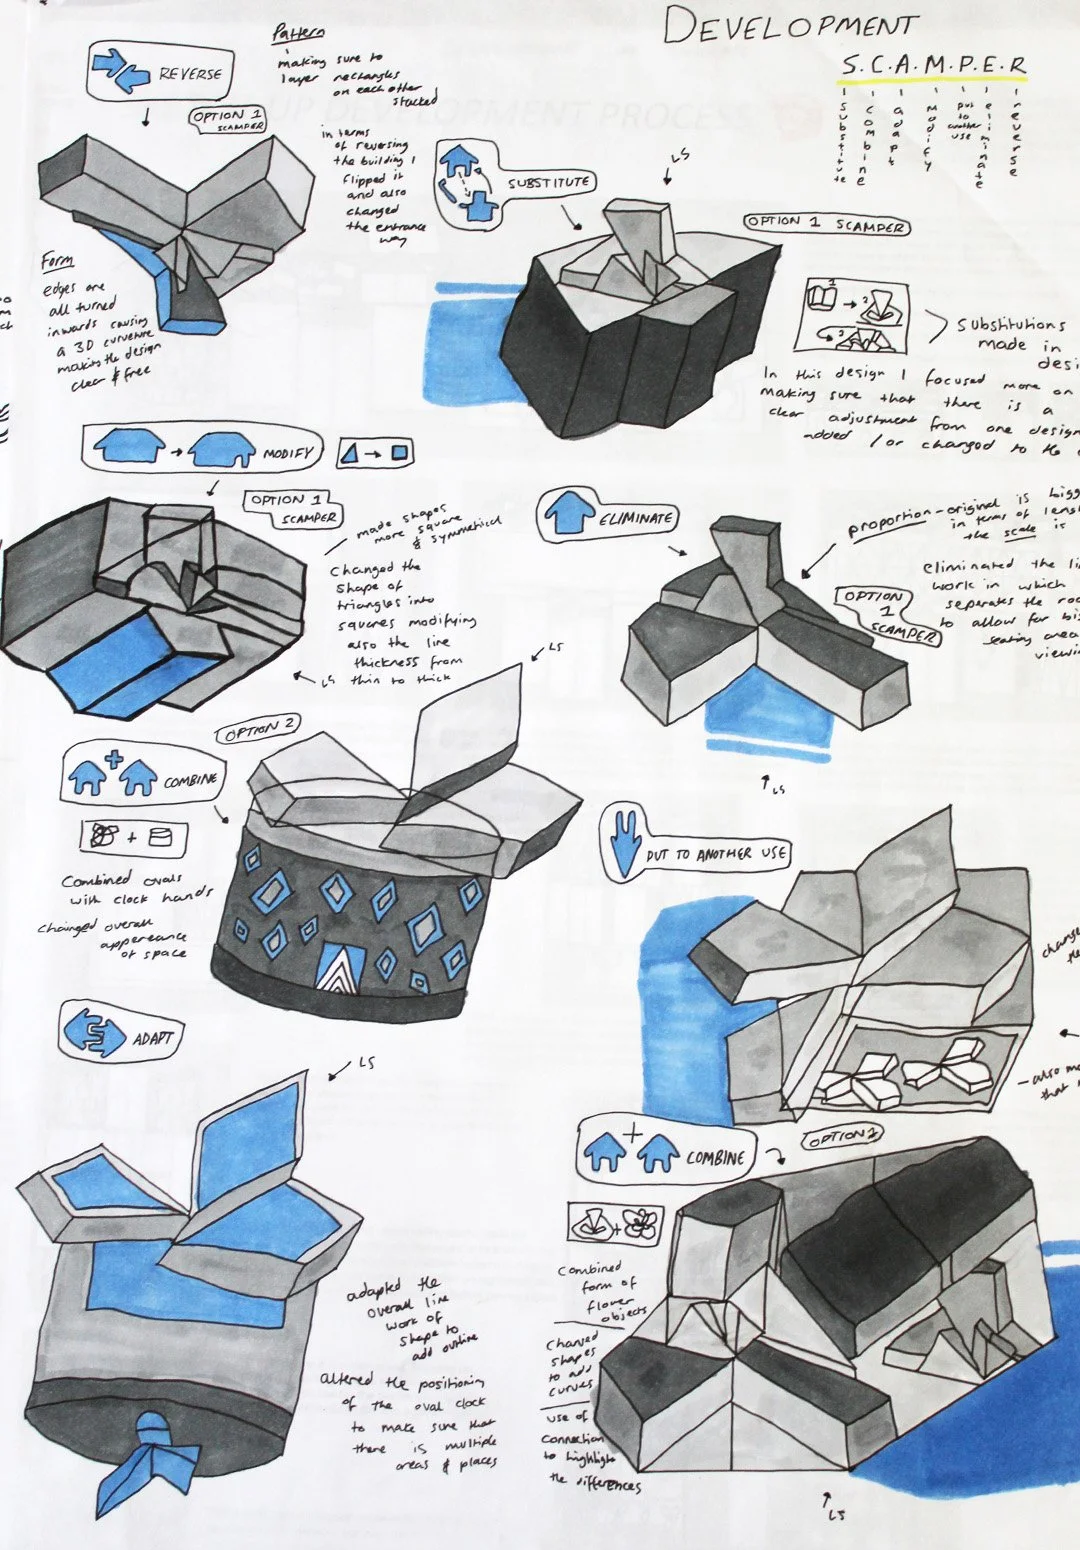 DEVELOPMENT
S.C.A.M.P.E.R
substitute
combine
adapt
modify
put to another use
eliminate
reverse
REVERSE
OPTION 1
SCAMPER
Pattern
making sure to
layer rectangles
on each other
stacked
in terms
of reversing
the building I
flipped it
and also
changed
the entrance
way
Form
edges are
all turned
inwards causing
a 3D curveture
making the design
clear & free
SUBSTITUTE
LS
OPTION 1 SCAMPER
1
2
3
Substitutions
made in
desi
In this design I focused more on
making sure that there is a
clear adjustment from one design
added / or changed to the
MODIFY
OPTION 1
SCAMPER
made shapes
more square
& symmetrical
changed the
shape of
triangles into
squares modifying
also the line
thickness from
thin to thick
LS
ELIMINATE
proportion - original is bigg
in terms of leng
the scale is
eliminated the li
work in which
seperates the roo
to allow for big
seating area
viewi
OPTION
1
SCAMPER
LS
OPTION 2
LS
COMBINE
+
Combined ovals
with clock hands
changed overall
appereance
of space
PUT TO ANOTHER USE
change
the
also m
that
ADAPT
LS
adapted the
overall line
work of
shape to
add outline
altered the positioning
of the oval clock
to make sure that
there is multiple
areas & places
COMBINE
OPTION 1
+
combined
form of
flower
objects
Changed
shapes
to add
curves
use of
connection
to highlight
the differences
LS